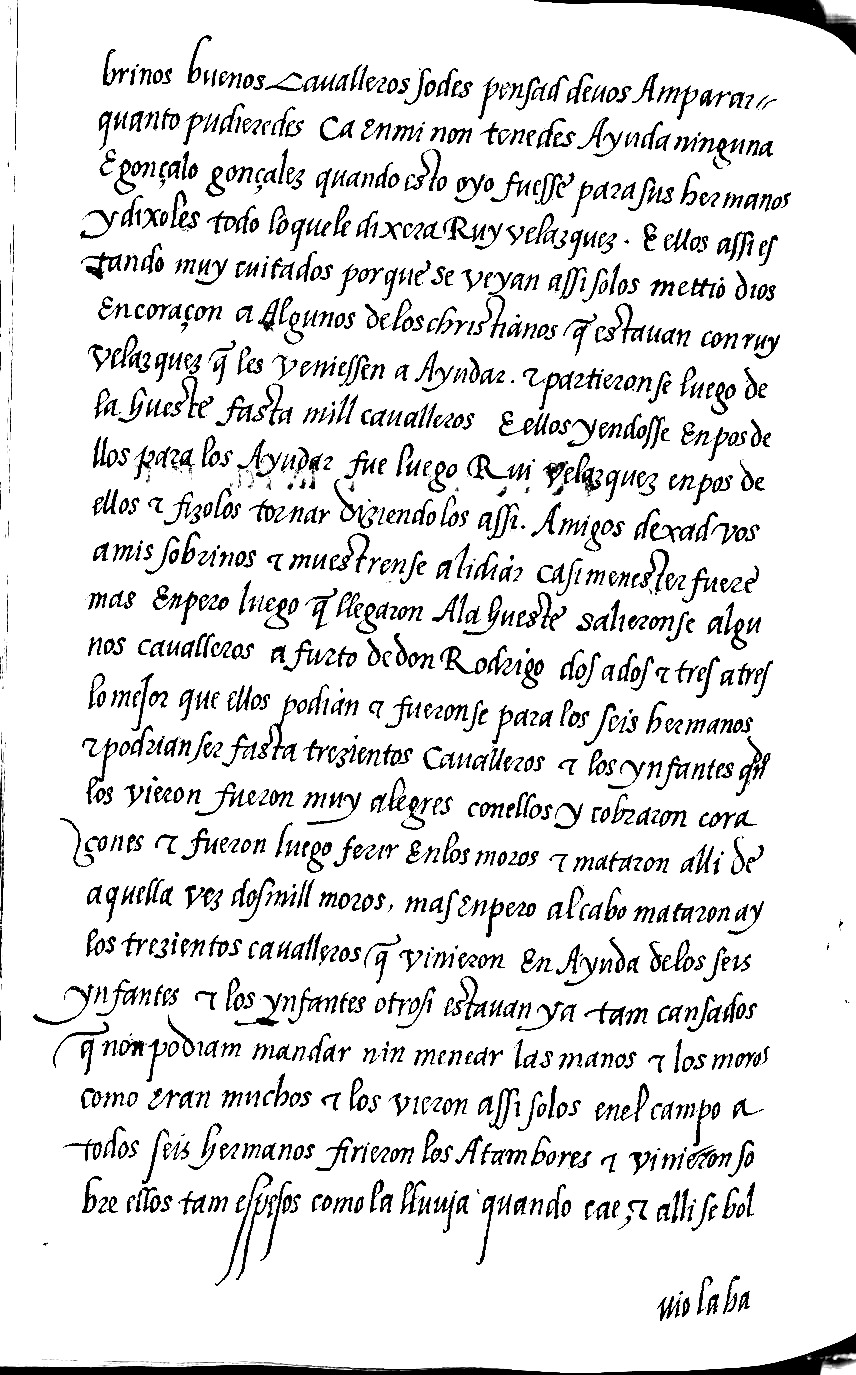 brinos buenos Cavalleros sodes pensad deuos Amparar
quanto pudieredes Ca enmi non tenedes Ayuda ninguna
E gonçalo gonçalez quando esto oyo fuesse para sus hermanos
y dixoles todo lo quele dixera Ruy velazquez . E ellos assi es
tando muy cuitados porque se veyan assi solos mettio dios
En coraçon a Algunos delos christianos q̃ estavan con ruy
velazquez q̃ les veniessen a Ayudar . τ partieronse luego de
la hueste fasta mill cavalleros E ellos yendosse En pos de
llos para los Ayudar fue luego Rui velazquez en pos de
ellos τ fizolos tornar diziendo los assi . Amigos dexad vos
a mis sobrinos τ muestrense a lidiar ca si menester fuere
mas Enpero luego q̃ llegaron Ala hueste salieronse algu
nos cavalleros a furto de don Rodrigo dos a dos τ tres a tres
lo mejor que ellos podian τ fueronse para los seis hermanos
τ podrian ser fasta trezientos Cavalleros τ los ynfantes qdo
los vieron fueron muy alegres conellos y cobraron cora
çones τ fueron luego ferir Enlos moros τ mataron alli de
aquella vez dos mill moros , mas Enpero al cabo mataron ay
los trezientos cavalleros q̃ vinieron En Ayuda delos seis
ynfantes τ los ynfantes otrosi estavan ya tam cansados
q̃ non podiam mandar nin menear las manos τ los moros
como eran muchos τ los vieron assi solos enel campo a
todos seis hermanos firieron los Atambores τ vinieron so
bre ellos tam espesos como la lluuja quando cae , τ alli se bol
uio la ba